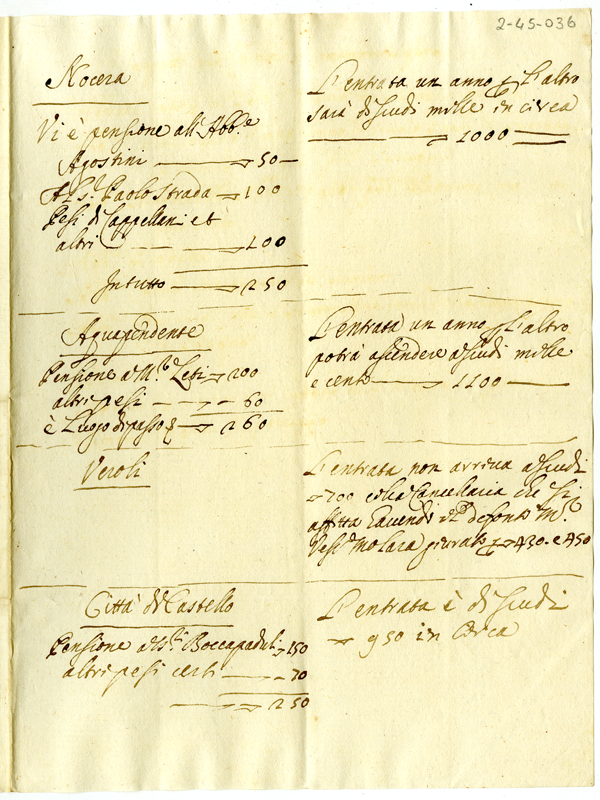 2-45-036
Nocera
Vi è pensione all' Abb.e
Agostini 50
Al S.r Paolo Strada 100
Pesi di Cappellani et
altri 100
In tutto 250
L'entrata un anno p l'altro
sarà di scudi mille in circa
1000
Aquapendente
Pensione a M.r Leti 200
altri pesi 60
è Luogo di passo 260
L'entrata un anno p l'altro
potrà ascendere a scudi mille
e cento 1100
Veroli
L'entrata non arriva a scudi
700 colla Cancellaria che si
affitta havendo il defonto M.r
Vesc.o Molara giurato 430. e 450
Città di Castello
Pensione a Boccapaduli 150
altri pesi certi 70
250
L'entrata è di scudi
950 in Circa